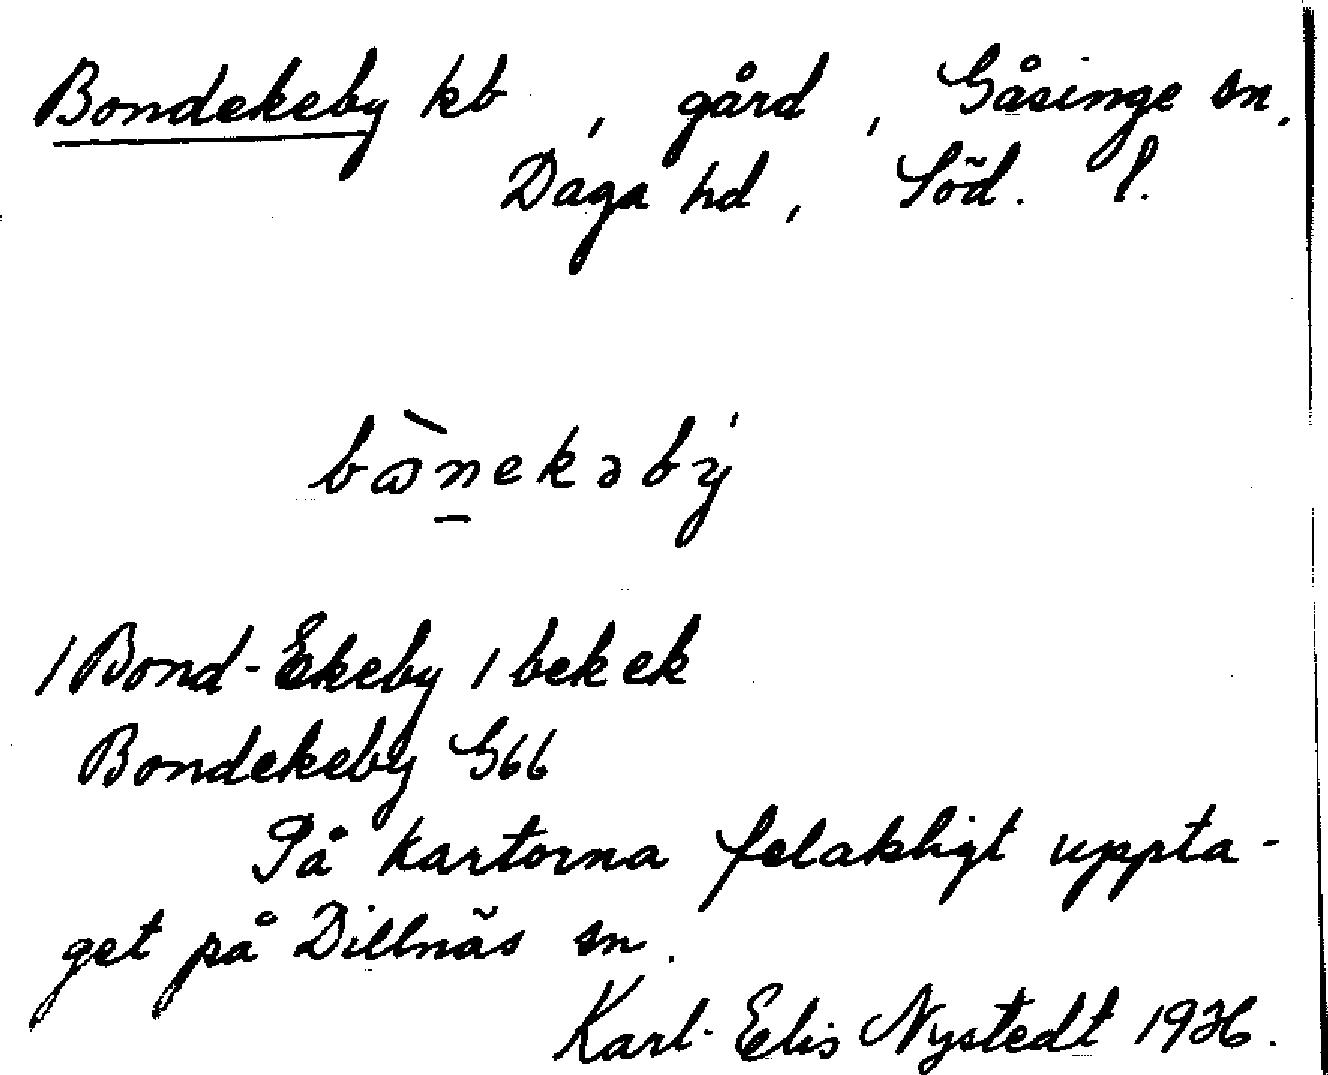 Bondekeby kb, gård, Gåsinge sn.
Daga hd, Söd. l.
bɷ̀nekəbý
/Bond-Ekeby/ bekek
Bondekeby G66
På kartorna felaktigt uppta-
get på Dillnäs sn.
Karl-Elis Nystedt 1936.